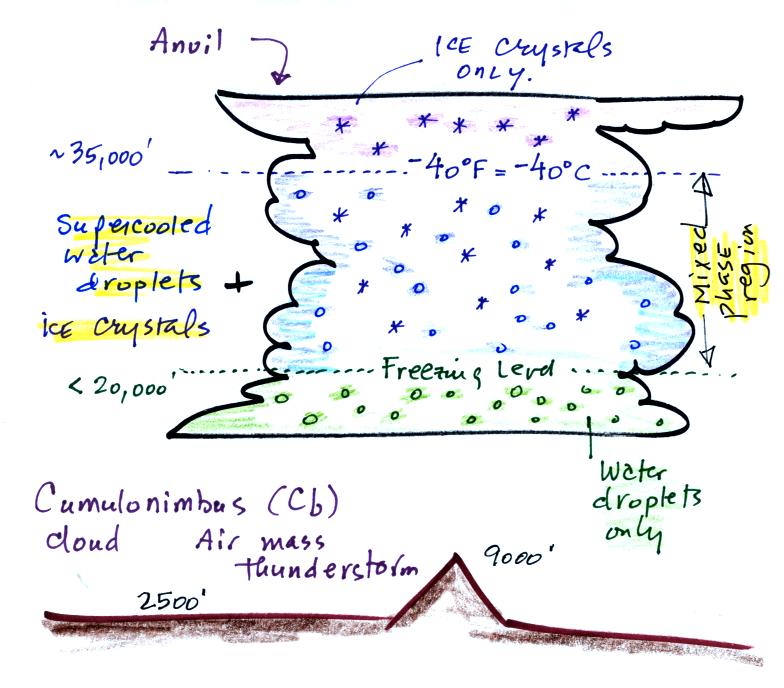 Anvil
ICE Crystals
ONLY.
~35,000'
-40°F = -40°C
Supercooled
water
droplets +
ICE Crystals
Mixed
phase
region
< 20,000'
Freezing Level
Water
droplets
only
Cumulonimbus (Cb)
cloud Air mass
thunderstorm
9000'
2500'